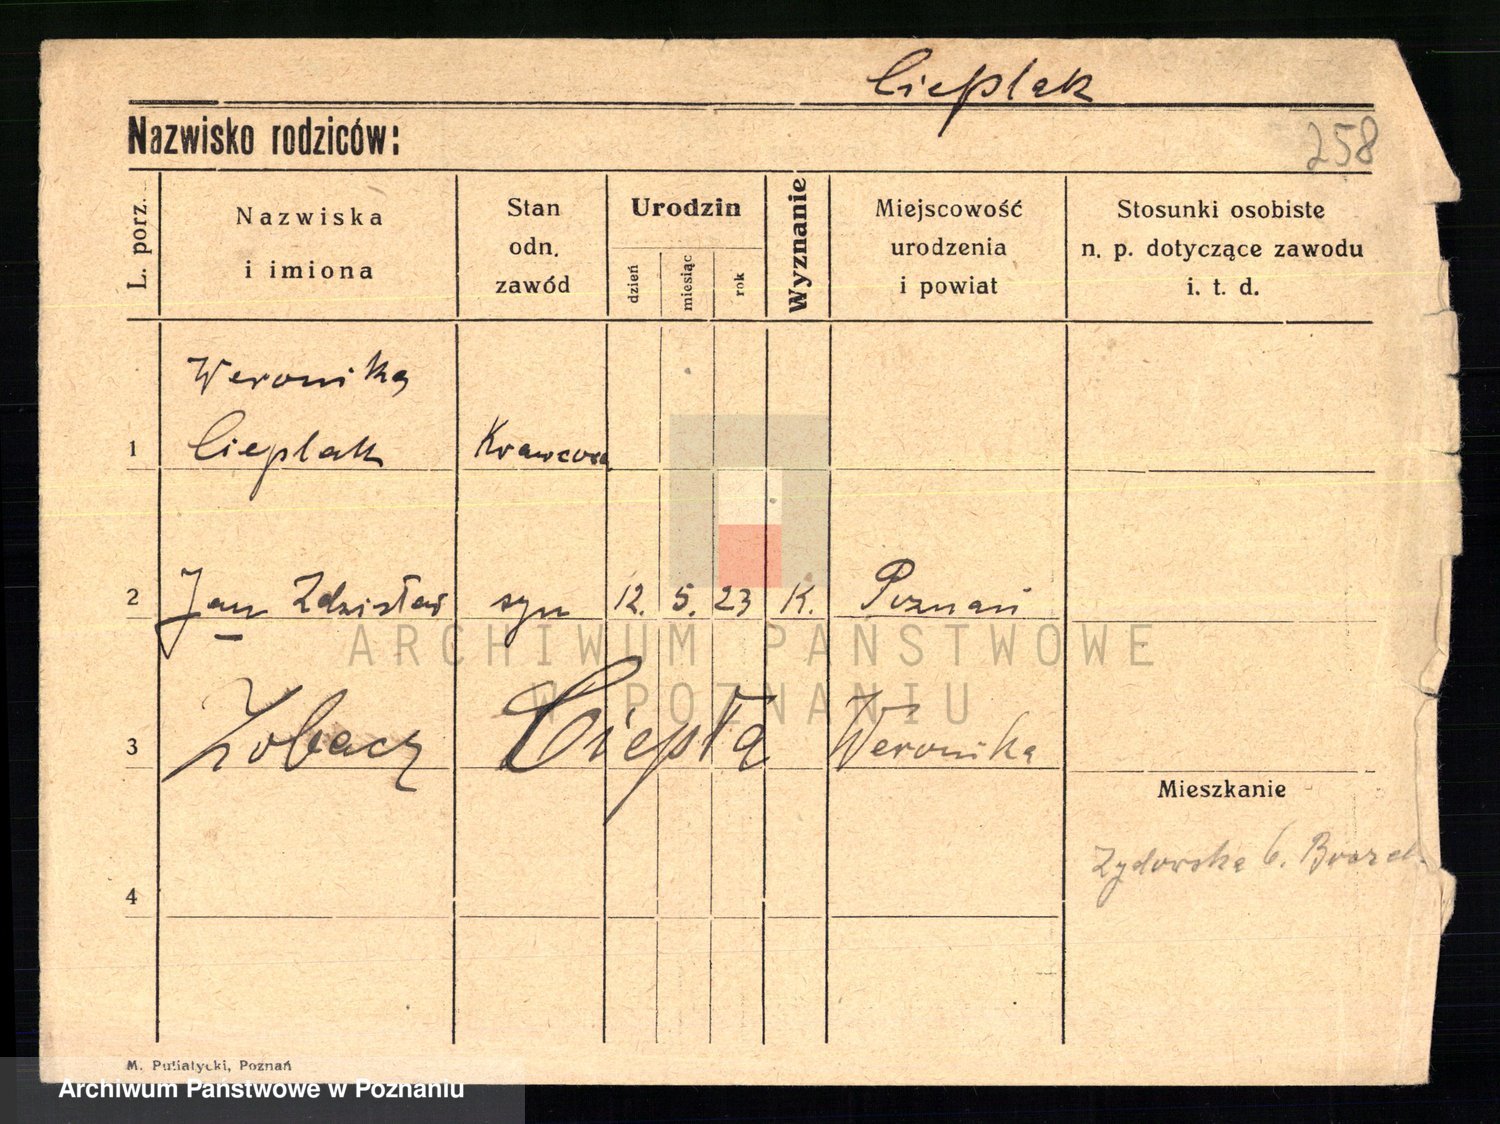 Cieplak
Nazwisko rodziców:
258
L. porz.
Nazwiska
i imiona
Stan
odn.
zawód
Urodzin
dzień
miesiąc
rok
Wyznanie
Miejscowość
urodzenia
i powiat
Stosunki osobiste
n. p. dotyczące zawodu
i. t. d.
Weronika
1 Cieplak Krawcowa
2 Jan Zdzisław syn 12. 5. 23 K. Poznań
ARCHIWUM PAŃSTWOWE
W POZNANIU
3 Zobacz Ciepła Weronika
Mieszkanie
Zydowska 6.
4
M. Putiatycki, Poznań
Archiwum Państwowe w Poznaniu